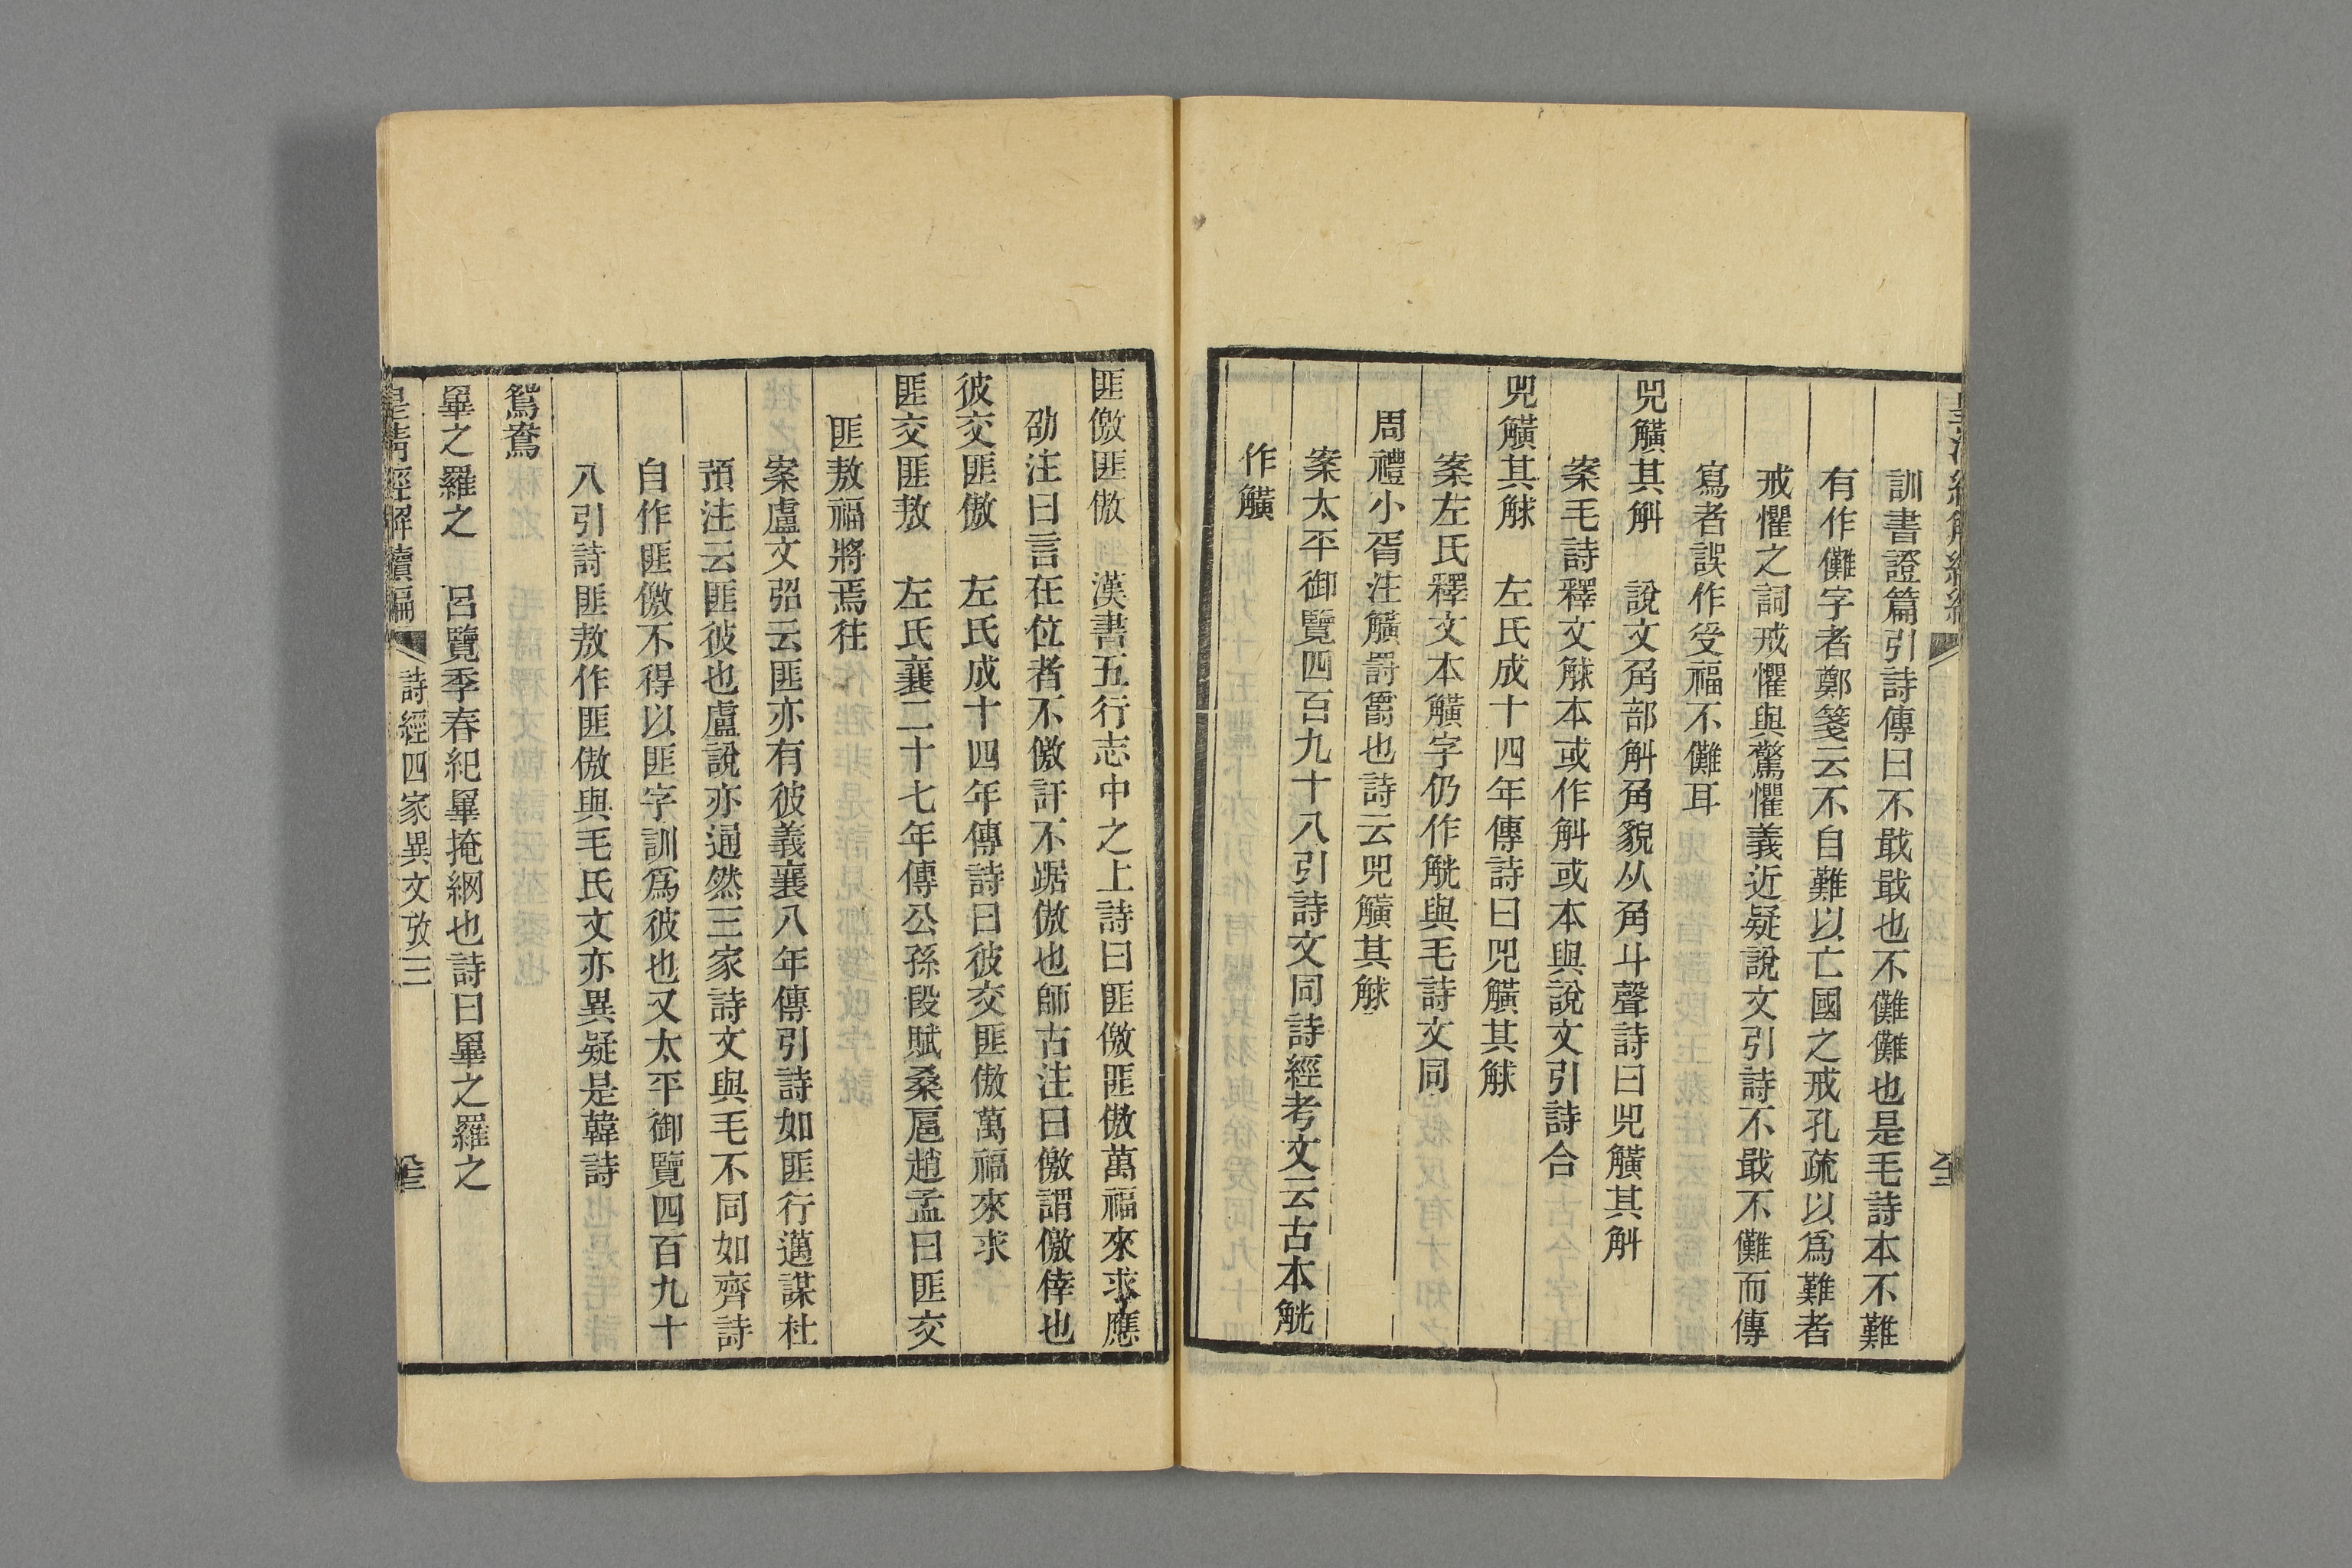 訓書證篇引詩傳曰不戢戢也不儺儺也是毛詩本不難
有作儺字者鄭箋云不自難以亡國之戒孔疏以爲難者
戒懼之詞戒懼與驚懼義近疑說文引詩不戢不儺而傳
寫者誤作受福不儺耳
兕觵其斛　說文角部斛角貌从角斗聲詩曰兕觵其斛
案毛詩釋文觩本或作斛或本與說文引詩合
兕觵其觩　左氏成十四年傳詩曰兕觵其觩
案左氏釋文本觵字仍作觥與毛詩文同
周禮小胥注觵罰爵也詩云兕觵其觩
案太平御覽四百九十八引詩文同詩經考文云古本觥
作觵
匪儌匪傲　漢書五行志中之上詩曰匪儌匪傲萬福來求應
劭注曰言在位者不儌訐不踞傲也師古注曰儌謂儌倖也
彼交匪傲　左氏成十四年傳詩曰彼交匪傲萬福來求
匪交匪敖　左氏襄二十七年傳公孫段賦桑扈趙孟曰匪交
匪敖福將焉往
案盧文弨云匪亦有彼義襄八年傳引詩如匪行邁謀杜
預注云匪彼也盧說亦通然三家詩文與毛不同如齊詩
自作匪儌不得以匪字訓爲彼也又太平御覽四百九十
八引詩匪敖作匪傲與毛氏文亦異疑是韓詩
鴛鴦
畢之羅之　呂覽季春紀畢掩網也詩曰畢之羅之
皇清經解續編　詩經四家異文攷三